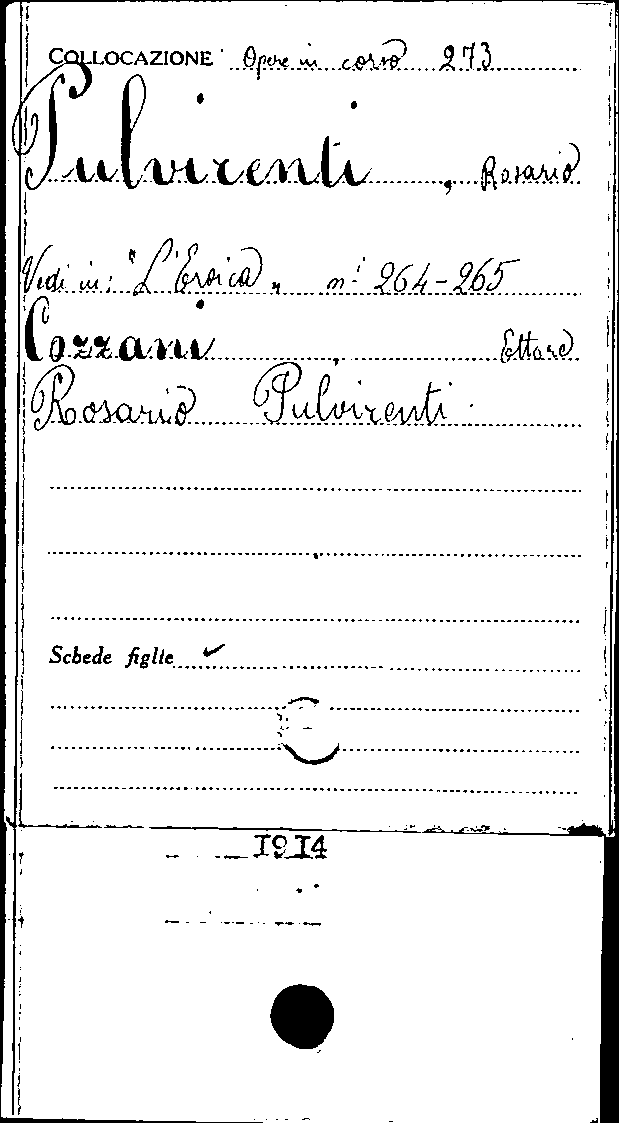 COLLOCAZIONE Opere in corso 273
Pulvirenti, Rosario
Vedi in: "L'Eroica„ n.i 264-265
Cozzani, Ettore
Rosario Pulvirenti.
Schede figlie
1914